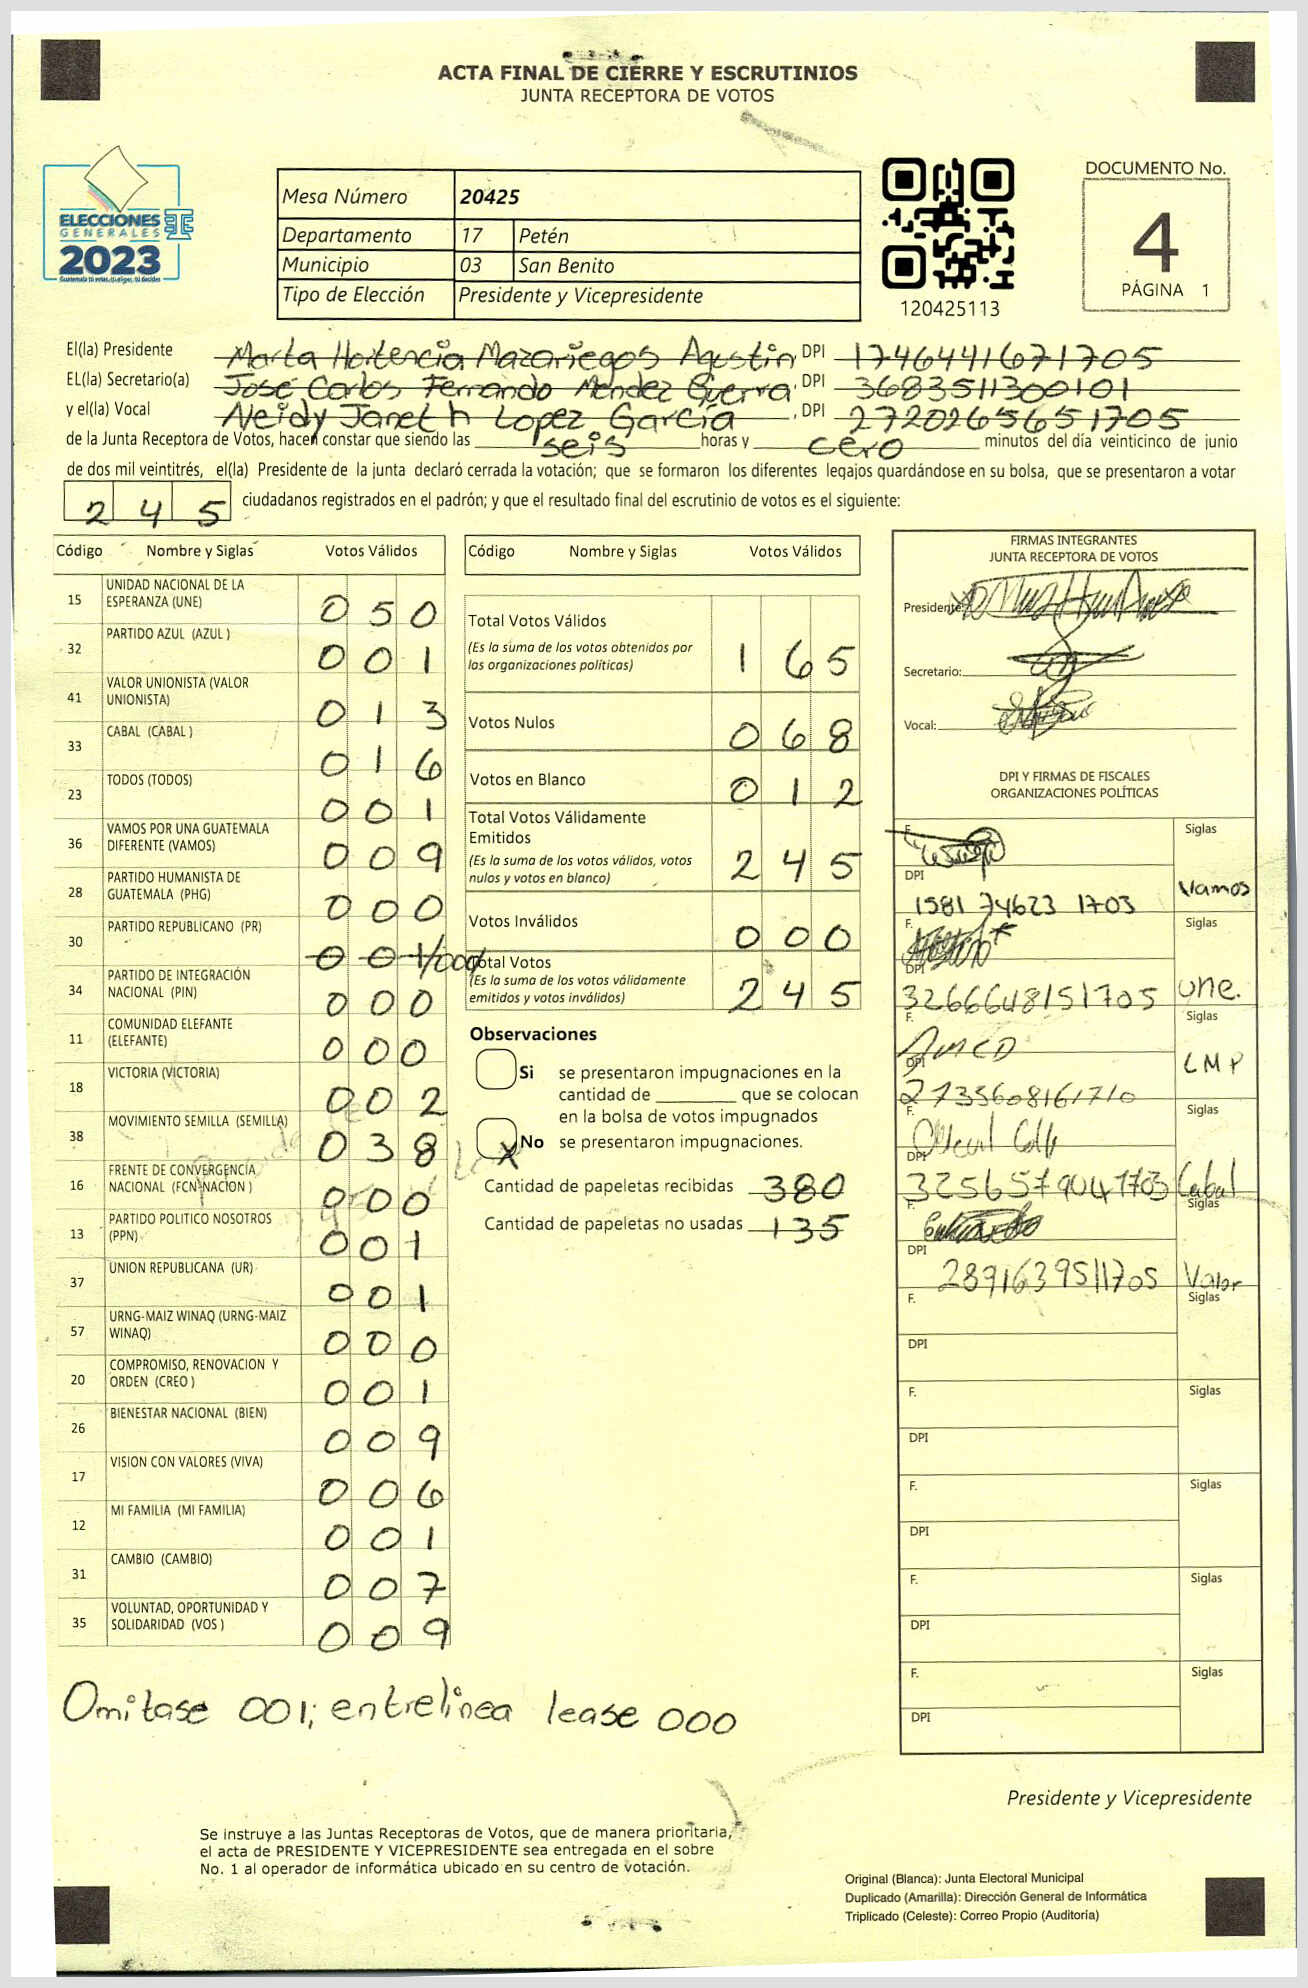 ACTA FINAL DE CIERRE Y ESCRUTINIOS
JUNTA RECEPTORA DE VOTOS
ELECCIONES
GENERALES
2023
Mesa Número 20425
Departamento 17 Petén
Municipio 03 San Benito
Tipo de Elección Presidente y Vicepresidente
120425113
DOCUMENTO No.
4
PÁGINA 1
El(la) Presidente Marta Hortencia Mazariegos Agustin, DPI 1746441671705
EL(la) Secretario(a) José Carlos Fernando Mendez Guerra, DPI 3683511300101
y el(la) Vocal Neidy Janeth Lopez García, DPI 2720265651705
de la Junta Receptora de Votos, hacen constar que siendo las seis horas y cero minutos del día veinticinco de junio
de dos mil veintitrés, el(la) Presidente de la junta declaró cerrada la votación; que se formaron los diferentes legajos guardándose en su bolsa, que se presentaron a votar
245 ciudadanos registrados en el padrón; y que el resultado final del escrutinio de votos es el siguiente:
Código Nombre y Siglas Votos Válidos
15 UNIDAD NACIONAL DE LA ESPERANZA (UNE) 050
32 PARTIDO AZUL (AZUL ) 001
41 VALOR UNIONISTA (VALOR UNIONISTA) 013
33 CABAL (CABAL ) 016
23 TODOS (TODOS) 001
36 VAMOS POR UNA GUATEMALA DIFERENTE (VAMOS) 009
28 PARTIDO HUMANISTA DE GUATEMALA (PHG) 000
30 PARTIDO REPUBLICANO (PR) 001/000/
34 PARTIDO DE INTEGRACIÓN NACIONAL (PIN) 000
11 COMUNIDAD ELEFANTE (ELEFANTE) 000
18 VICTORIA (VICTORIA) 002
38 MOVIMIENTO SEMILLA (SEMILLA) 038
16 FRENTE DE CONVERGENCIA NACIONAL (FCN NACION ) 000
13 PARTIDO POLITICO NOSOTROS (PPN) 001
37 UNION REPUBLICANA (UR) 001
57 URNG-MAIZ WINAQ (URNG-MAIZ WINAQ) 000
20 COMPROMISO, RENOVACION Y ORDEN (CREO ) 001
26 BIENESTAR NACIONAL (BIEN) 009
17 VISION CON VALORES (VIVA) 006
12 MI FAMILIA (MI FAMILIA) 001
31 CAMBIO (CAMBIO) 007
35 VOLUNTAD, OPORTUNIDAD Y SOLIDARIDAD (VOS ) 009
Omitase 001; entrelinea lease 000
Código Nombre y Siglas Votos Válidos
Total Votos Válidos 165
(Es la suma de los votos obtenidos por
las organizaciones políticas)
Votos Nulos 068
Votos en Blanco 012
Total Votos Válidamente
Emitidos 245
(Es la suma de los votos válidos, votos
nulos y votos en blanco)
Votos Inválidos 000
Total Votos 245
(Es la suma de los votos válidamente
emitidos y votos inválidos)
Observaciones
Si se presentaron impugnaciones en la
cantidad de ________ que se colocan
en la bolsa de votos impugnados
X No se presentaron impugnaciones.
Cantidad de papeletas recibidas 380
Cantidad de papeletas no usadas 135
FIRMAS INTEGRANTES
JUNTA RECEPTORA DE VOTOS
Presidente:
Secretario:
Vocal:
DPI Y FIRMAS DE FISCALES
ORGANIZACIONES POLÍTICAS
F. Siglas
DPI 1581 74623 1703 Vamos
F. Siglas
DPI 3266648151705 une.
F. Siglas
DPI 2735608161710 LMP
F. Siglas
DPI 3256579041703 Cabal
F. Siglas
DPI 2891639511705 Valor
F. Siglas
DPI
F. Siglas
DPI
F. Siglas
DPI
F. Siglas
DPI
F. Siglas
DPI
Presidente y Vicepresidente
Se instruye a las Juntas Receptoras de Votos, que de manera prioritaria,
el acta de PRESIDENTE Y VICEPRESIDENTE sea entregada en el sobre
No. 1 al operador de informática ubicado en su centro de votación.
Original (Blanca): Junta Electoral Municipal
Duplicado (Amarilla): Dirección General de Informática
Triplicado (Celeste): Correo Propio (Auditoría)